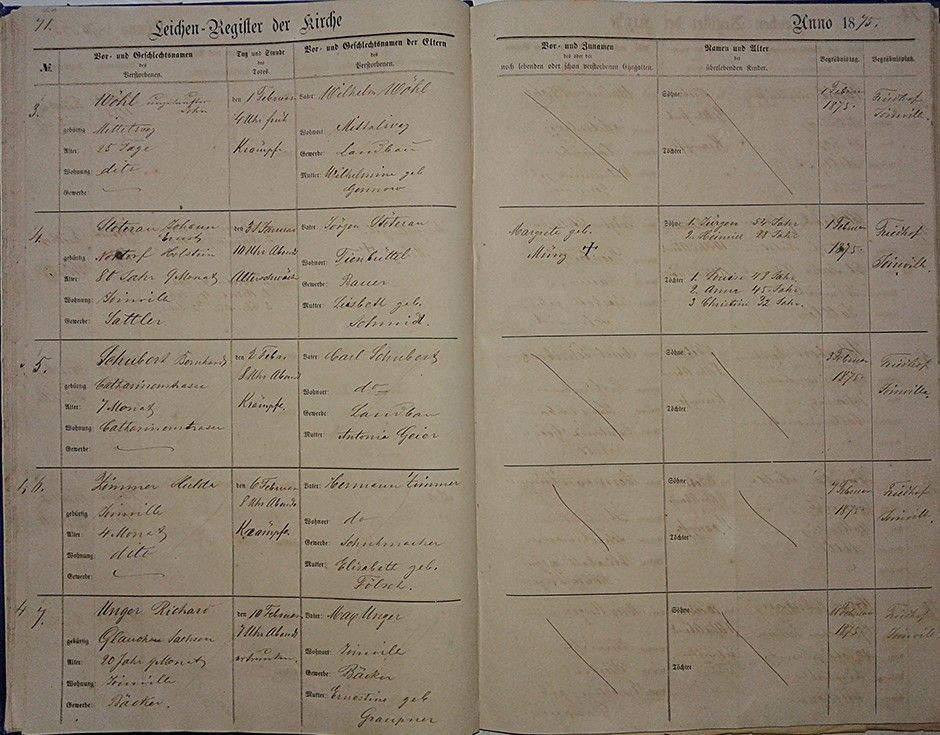 71.
Leichen-Register der Kirche
Anno 1875.
№
Vor- und Geschlechtsnamen
des
Verstorbenen.
Tag und Stunde
des
Todes.
Vor- und Geschlechtsnamen der Eltern
des
Verstorbenen.
Vor- und Zunamen
des oder der
noch lebenden oder schon verstorbenen Ehegatten.
Namen und Alter
der
überlebenden Kinder.
Begräbnisstag.
Begräbnisplatz.
3.
Wöhl ungetaufter
Sohn
gebürtig Mittelweg
Alter: 25 Tage
Wohnung: dito
Gewerbe:
den 1 Februar
4 Uhr früh
Krämpfe
Vater: Wilhelm Wöhl
Wohnort: Mittelweg
Gewerbe: Landbau
Mutter: Wilhelmine geb
Söhne:
Töchter:
1 Februar
1875.
Friedhof
Joinville.
4.
Stöteran Johann
Ernst
gebürtig Nortorf Holstein
Alter: 80 Jahr 9 Monat
Wohnung: Joinville
Gewerbe: Sattler
den 31 Januar
10 Uhr Abends
Altersschwäche
Vater: Jürgen Stöteran
Wohnort:
Gewerbe: Bauer
Mutter: Lisbeth geb.
Schmid.
Margrete geb.
Münz †
Söhne: 1. Jürgen 54 Jahr
2. Heinrich 28 Jahr
Töchter 1. Louise 48 Jahr
2. Anna 45 Jahr
3 Christine 32 Jahr.
1 Februar
1875
Friedhof
Joinville.
5.
Schubert Bernhard
gebürtig: Catharinenstrasse
Alter: 7 Monat
Wohnung: Catharinenstrasse
Gewerbe:
den 2 Febr.
8 Uhr Abends
Krämpfe.
Vater: Carl Schubert
Wohnort: do
Gewerbe: Landbau
Mutter: Antonia Geier
Söhne:
Töchter
3 Februar
1875.
Friedhof
Joinville.
6.
Zimmer Hulda
gebürtig Joinville
Alter: 4 Monat
Wohnung: dito
Gewerbe:
den 6 Februar
8 Uhr Abends
Krämpfe.
Vater: Hermann Zimmer
Wohnort do
Gewerbe: Schuhmacher
Mutter: Elisabeth geb.
Fölsch.
Söhne:
Töchter:
7 Februar
1875.
Friedhof
Joinville.
7.
Unger Richard
gebürtig Glauchau Sachsen
Alter: 20 Jahr 9 Monat
Wohnung: Joinville
Gewerbe: Bäcker.
den 10 Februar
7 Uhr Abends
ertrunken.
Vater: Max Unger
Wohnort: Joinville
Gewerbe: Bäcker
Mutter: Ernestine geb
Graupner
Söhne:
Töchter
11 Februar
1875.
Friedhof
Joinville